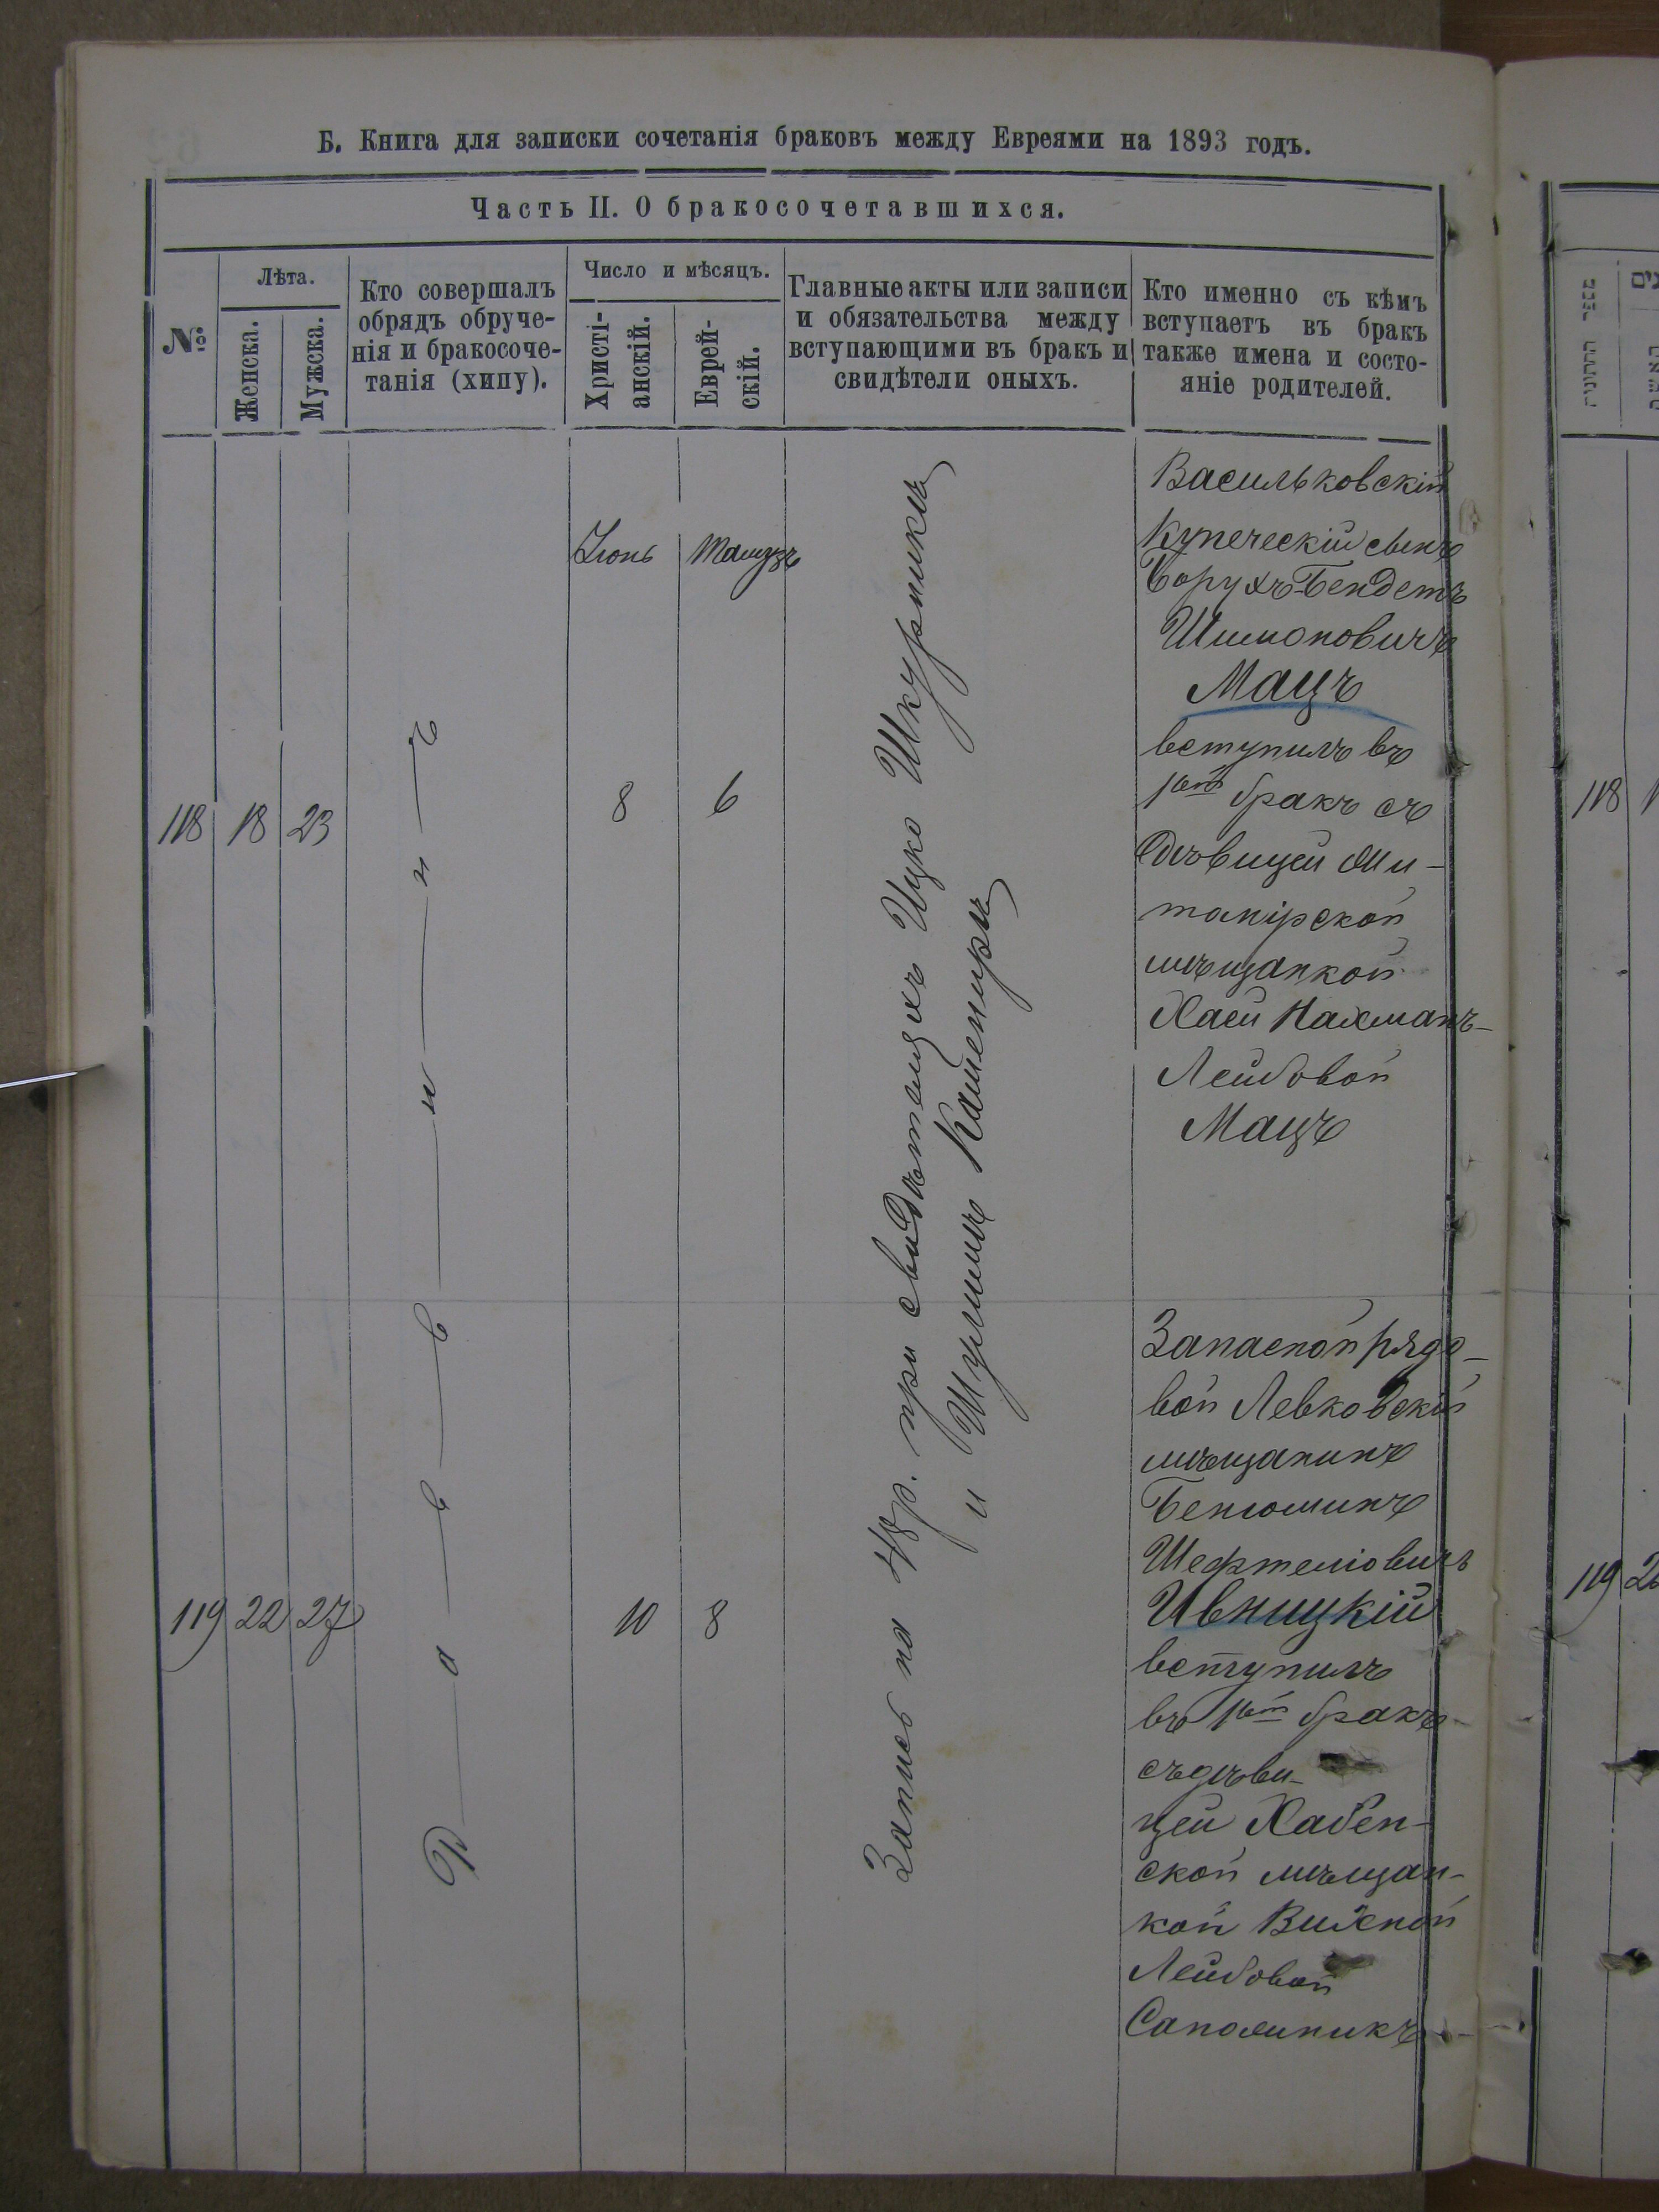 Б. Книга для записки сочетанія браковъ между Евреями на 1893 годъ.
Часть II. О бракосочетавшихся.
№
Лѣта.
Женска.
Мужска.
Кто совершалъ
обрядъ обруче-
нія и бракосоче-
танія (хипу).
Число и мѣсяцъ.
Христі-
анскій.
Еврей-
скій.
Главные акты или записи
и обязательства между
вступающими въ бракъ и
свидѣтели оныхъ.
Кто именно съ кѣмъ
вступаетъ въ бракъ
также имена и состо-
яніе родителей.
Іюнь
Тамузъ
118
18
23
Раввинъ
8
6
Запись на 48 р. при свидѣтеляхъ Ицко Шкурникъ
и Шулимъ Камениръ
Васильковскій
Купеческій сынъ
Борухъ-Бендетъ
Шимоновичъ
Мацъ
вступилъ въ
1ый бракъ съ
дѣвицей
мѣщанкой
Хаей Нахманъ-
Лейбовой
Мацъ
119
22
27
10
8
Запасной рядо-
вой Левковскій
мѣщанинъ
Беньюминъ
Шефтеліовичъ
Ивницкій
вступилъ
въ 1ый бракъ
съ дѣви-
цей Хабен-
ской мѣщан-
кой
Лейбовой
118
119